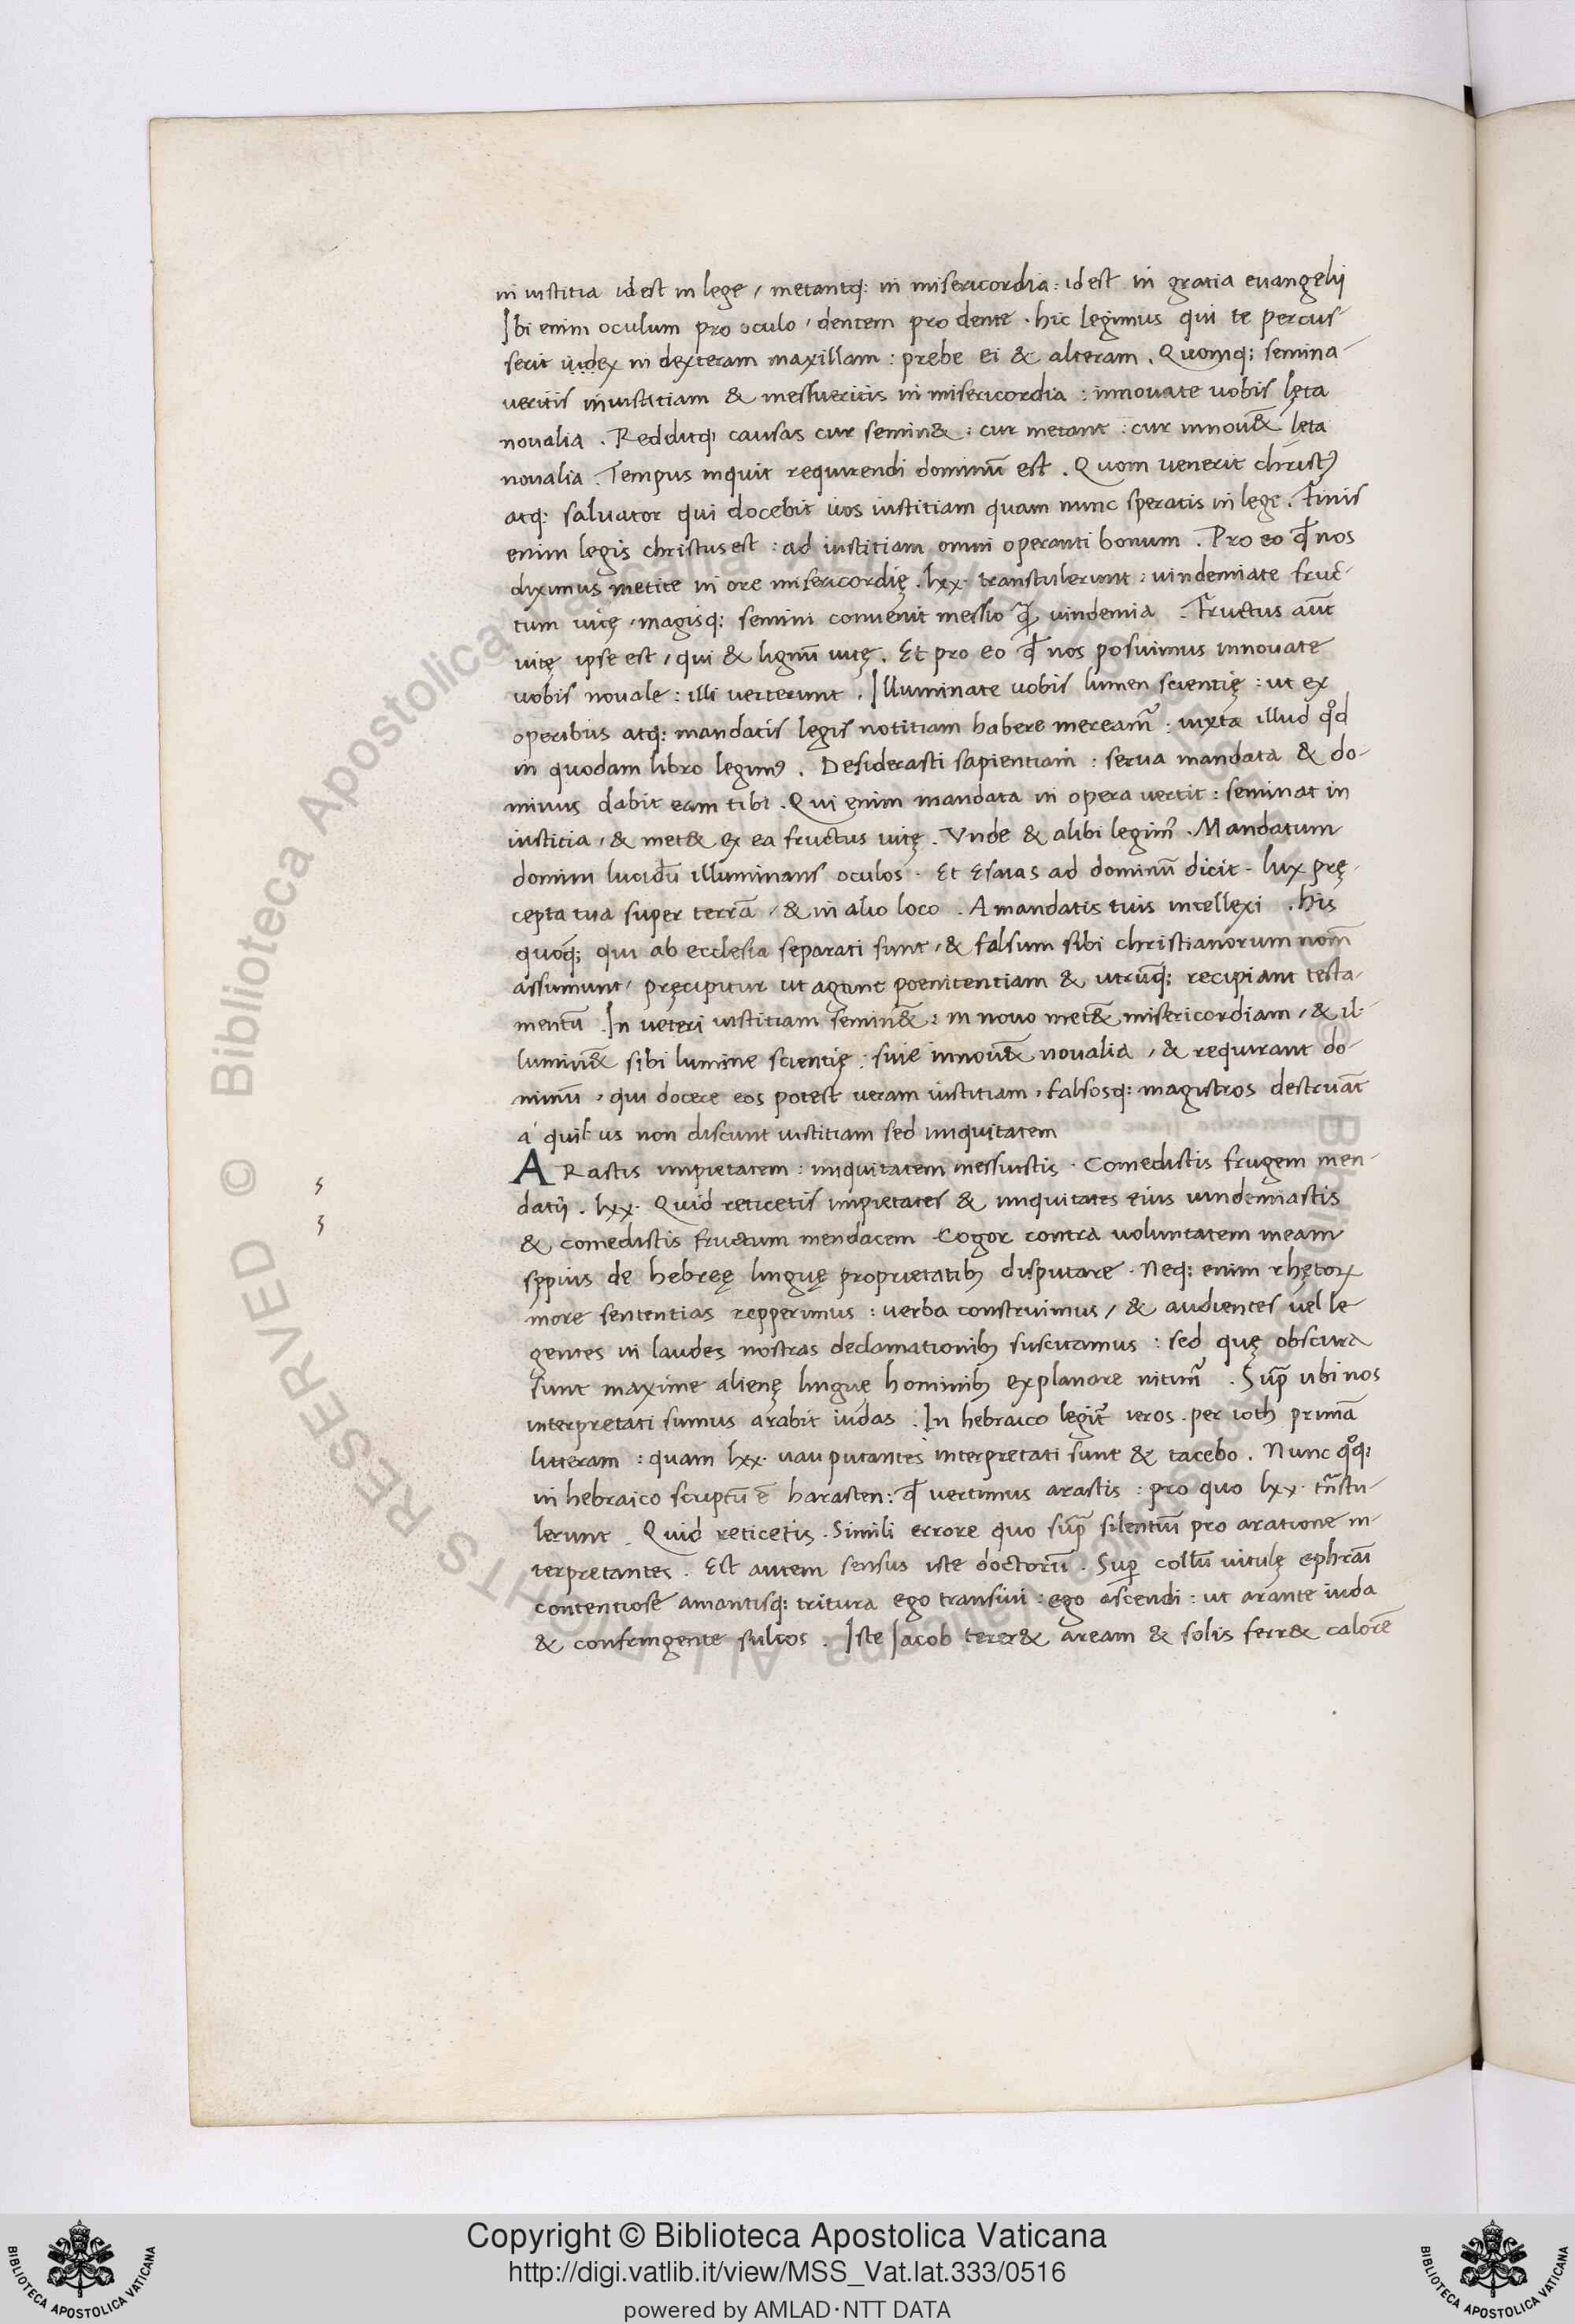 in iustitia idest in lege / metantq: in misericordia : idest in gratia euangelij
Ibi enim oculum pro oculo / dentem pro dente . hic legimus qui te percus-
serit iudex in dexteram maxillam : prebe ei & alteram . Quomq; semina-
ueritis in iustitiam & messueritis in misericordia : innouate uobis lęta
noualia . Redditq; causas cur semin& : cur metant : cur innou&̄ lęta
noualia . Tempus inquit requirendi dominū est . Quom uenerit christꝰ
atq: saluator qui docebit uos iustitiam quam nunc speratis in lege . Finis
enim legis christus est : ad iustitiam omni operanti bonum . Pro eo qđ nos
diximus metite in ore misericordię . lxx . transtulerunt : uindemiate fruc-
tum uitę , magisq: semini conuenit messio q̄ uindemia . Fructus aūt
uitę ipse est / qui & lignū uitę . Et pro eo qđ nos posuimus innouate
uobis nouale : illi uerterunt . Illuminate uobis lumen scientię : ut ex
operibus atq: mandatis legis notitiam habere meream̃ : iuxta illud qͦd
in quodam libro legimꝰ . Desiderasti sapientiam : serua mandata & do-
minus dabit eam tibi . Qui enim mandata in opera uertit : seminat in
iustitia , & met& ex ea fructus uitę . Vnde & alibi legimꝰ . Mandatum
domini lucidū illuminans oculos . Et Esaias ad dominū dicit . lux prę-
cepta tua super terrā / & in alio loco . A mandatis tuis intellexi . his
quoq; qui ab ecclesia separati sunt , & falsum sibi christianorum nom̄
assumunt / pręcipitur ut agant poenitentiam & utrūq; recipiant testa-
mentū . In ueteri iustitiam semin&̄ : in nouo met&̄ misericordiam / & il-
lumin&̄ sibi lumine scientię : siue innou&̄ noualia , & requirant do-
minū , qui docere eos potest ueram iustitiam , falsosq: magistros destruāt
á quibus non discunt iustitiam sed iniquitatem
ARastis impietatem : iniquitatem messuistis . Comedistis frugem men-
datij . lxx . Quid reticetis impietates & iniquitates eius uindemiastis
& comedistis fructum mendacem . Cogor contra uoluntatem meam
sępius de hebreę linguę proprietatibꝫ disputare . Neq: enim rhętoꝝ
more sententias repperimus : uerba construimus / & audientes uel le
gentes in laudes nostras declamationibꝫ suscitamus : sed quę obscura
sunt maxime alienę linguę hominibꝫ explanare nitim̃ . Sup̄ ubi nos
interpretati sumus arabit iudas . In hebraico legit̃ ieros . per ioth primā
litteram : quam lxx . uau putantes interpretati sunt & tacebo . Nunc qͦq:
in hebraico scriptū ē harasten : qđ uertimus arastis : pro quo lxx . tr̃astu-
lerunt . Quid reticetis . Simili errore quo sup̄ silentiū pro aratione in-
terpretantes . Est autem sensus iste doctorū . Sup̄ collū uitulę ephrāi
contentiose amantisq: tritura ego transiui : ego ascendi : ut arante iuda
& confringente sulcos . Iste Iacob terer& aream & solis ferr& calorē
Copyright © Biblioteca Apostolica Vaticana
http://digi.vatlib.it/view/MSS_Vat.lat.333/0516
powered by AMLAD·NTT DATA